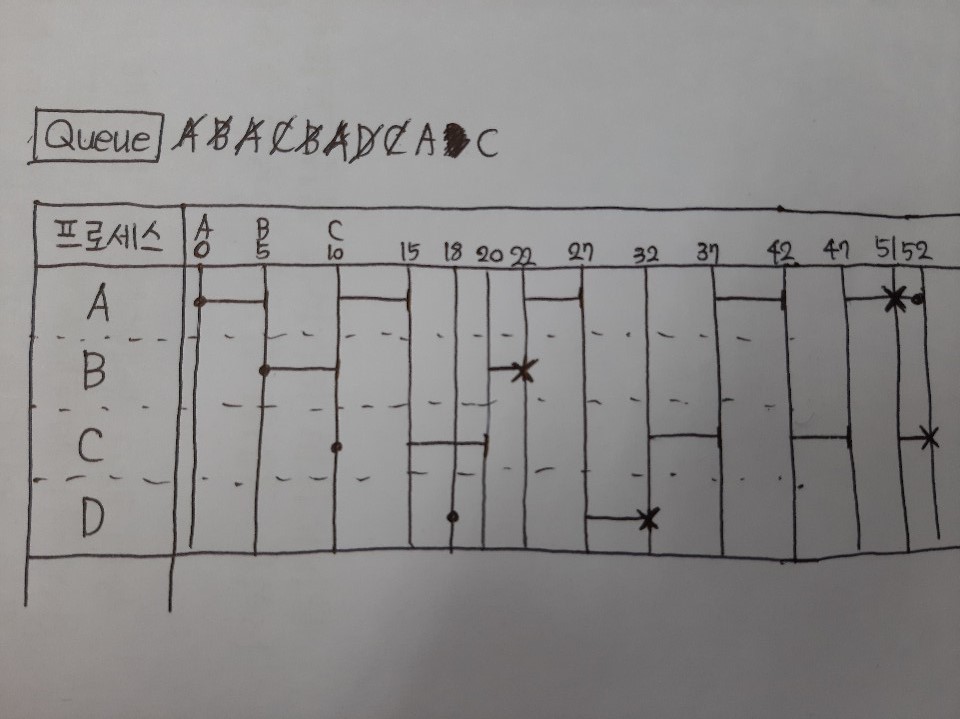 Queue A B A C B A D C A C
프로세스 A B C
0 5 10 15 18 20 22 27 32 37 42 47 51 52
A
B
C
D